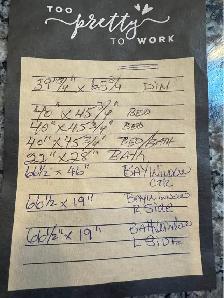 TOO
pretty
TO WORK
39" 3/4" x 65 3/4 DIN
40" x 45 3/4" BED
40" x 45 3/4" BED
40" x 45 3/4" BED/BATH
22" x 28" BATH
66 1/2" x 46" BAY WINDOW
66 1/2" x 19" BAY WINDOW
R Side
66 1/2" x 19" BAY WINDOW
L Side